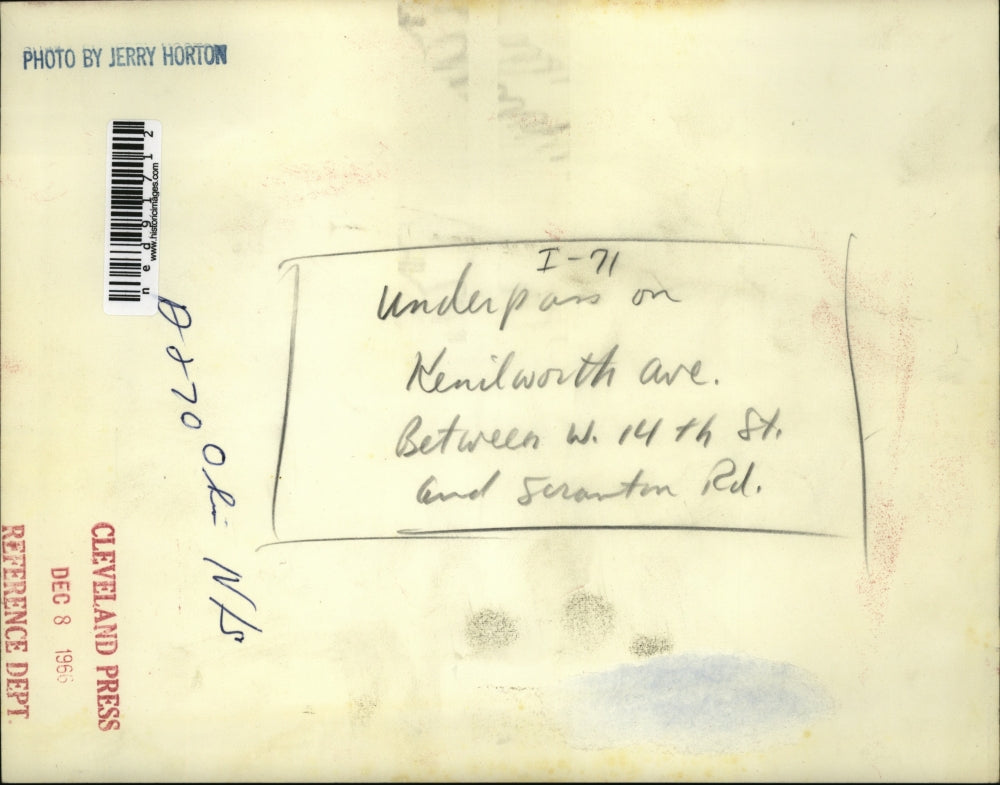 PHOTO BY JERRY HORTON
ned91712
www.historicimages.com
I-71
Underpass on
Kenilworth Ave.
Between W. 14th St.
and Scranton Rd.
CLEVELAND PRESS
DEC 8 1966
REFERENCE DEPT.